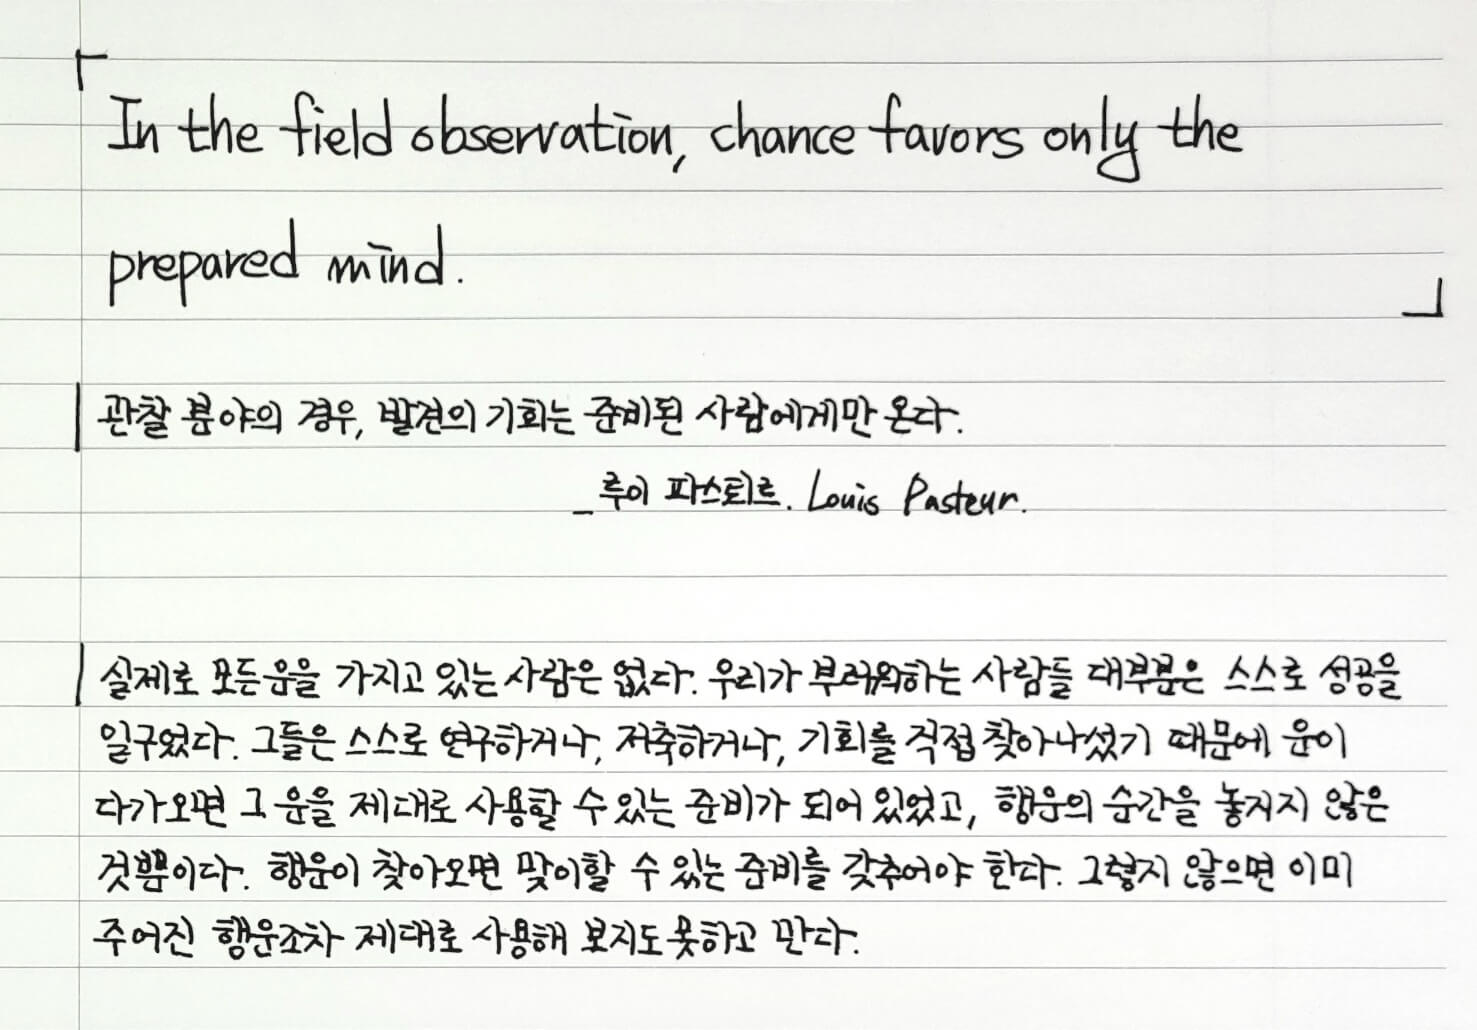 「
In the field observation, chance favors only the
prepared mind.
」
관찰 분야의 경우, 발견의 기회는 준비된 사람에게만 온다.
_ 루이 파스퇴르. Louis Pasteur.
실제로 모든 운을 가지고 있는 사람은 없다. 우리가 부러워하는 사람들 대부분은 스스로 성공을
일구었다. 그들은 스스로 연구하거나, 저축하거나, 기회를 직접 찾아나섰기 때문에 운이
다가오면 그 운을 제대로 사용할 수 있는 준비가 되어 있었고, 행운의 순간을 놓치지 않은
것뿐이다. 행운이 찾아오면 맞이할 수 있는 준비를 갖추어야 한다. 그렇지 않으면 이미
주어진 행운조차 제대로 사용해 보지도 못하고 만다.